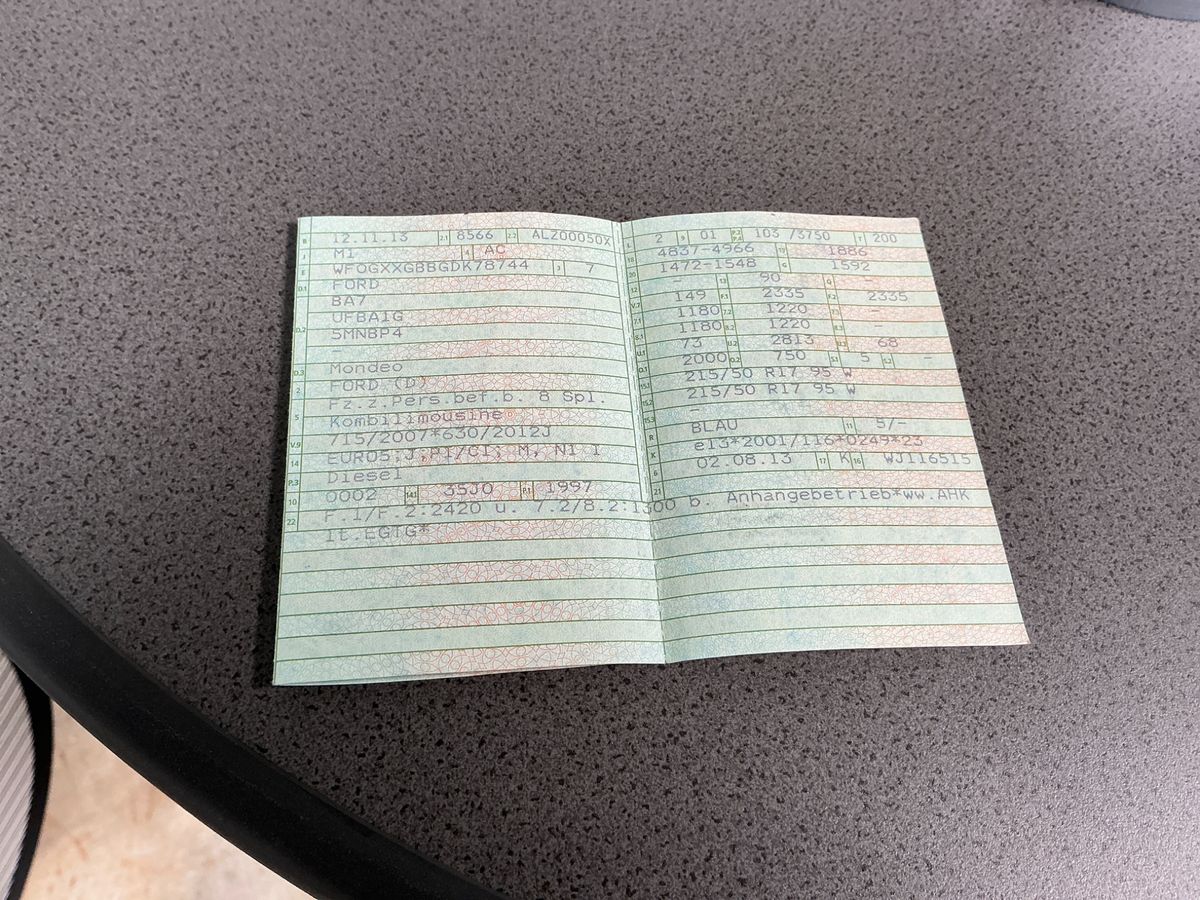 B 12.11.13 2.1 8566 2.2 ALZ00050X
J M1 4 AC
E WF0GXXGBBGDK78744 3 7
D.1 FORD
BA7
D.2 UFBA1G
5MNBP4
-
D.3 Mondeo
2 FORD (D)
5 Fz.z.Pers.bef.b. 8 Spl.
Kombilimousine
V.9 715/2007*630/2012J
14 EURO5;J;PI/CI; M, N1 I
P.3 Diesel
10 0002 14.1 35J0 P.1 1997
22 F.1/F.2:2420 u. 7.2/8.2:1300 b. Anhangebetrieb*ww.AHK
lt.EGTG*
L 2 9 01 P.2 P.4 103 /3750 T 200
18 4837-4966 19 1886
20 1472-1548 G 1592
12 - 13 90 Q -
V.7 149 F.1 2335 F.2 2335
7.1 1180 7.2 1220 7.3 -
8.1 1180 8.2 1220 8.3 -
U.1 73 U.2 2813 U.3 68
O.1 2000 O.2 750 S.1 5 S.2 -
15.1 215/50 R17 95 W
15.2 215/50 R17 95 W
15.3 -
R BLAU 11 5/-
K e13*2001/116*0249*23
6 02.08.13 17 K 16 WJ116515
21